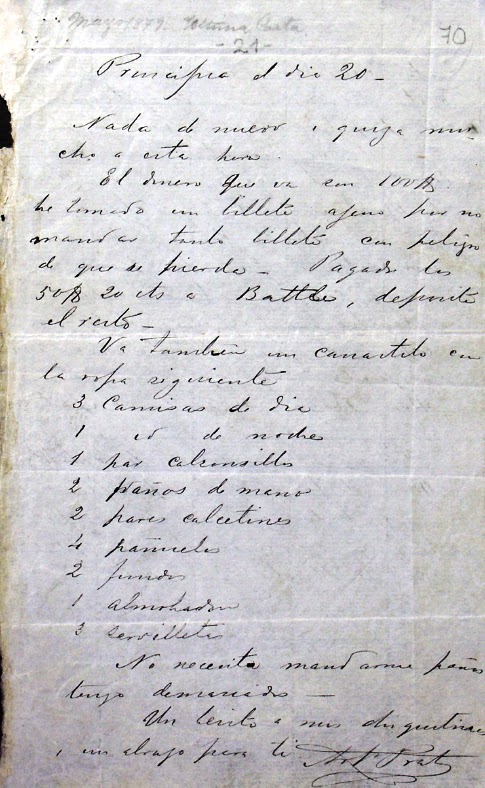 Mayo 1879. Ultima Carta
70
- 21 -
Principia el dia 20 -
Nada de nuevo i quiza mu-
cho a esta hora.
El dinero que va son 100 $
he tomado un billete ajeno por no
mandar tanto billete con peligro
de que se pierda - Pagado los
50 $ 20 cts a Battle, deposite
el resto -
Va tambien un canastito con
la ropa siguiente
3 Camisas de dia
1 id de noche
1 par calzoncillos
2 paños de mano
2 pares calcetines
4 pañuelos
2 fundas
1 almohadon
3 servilletas
No necesita mandarme paños
tengo demasiados -
Un besito a mis
i un abrazo para ti Art. Prat